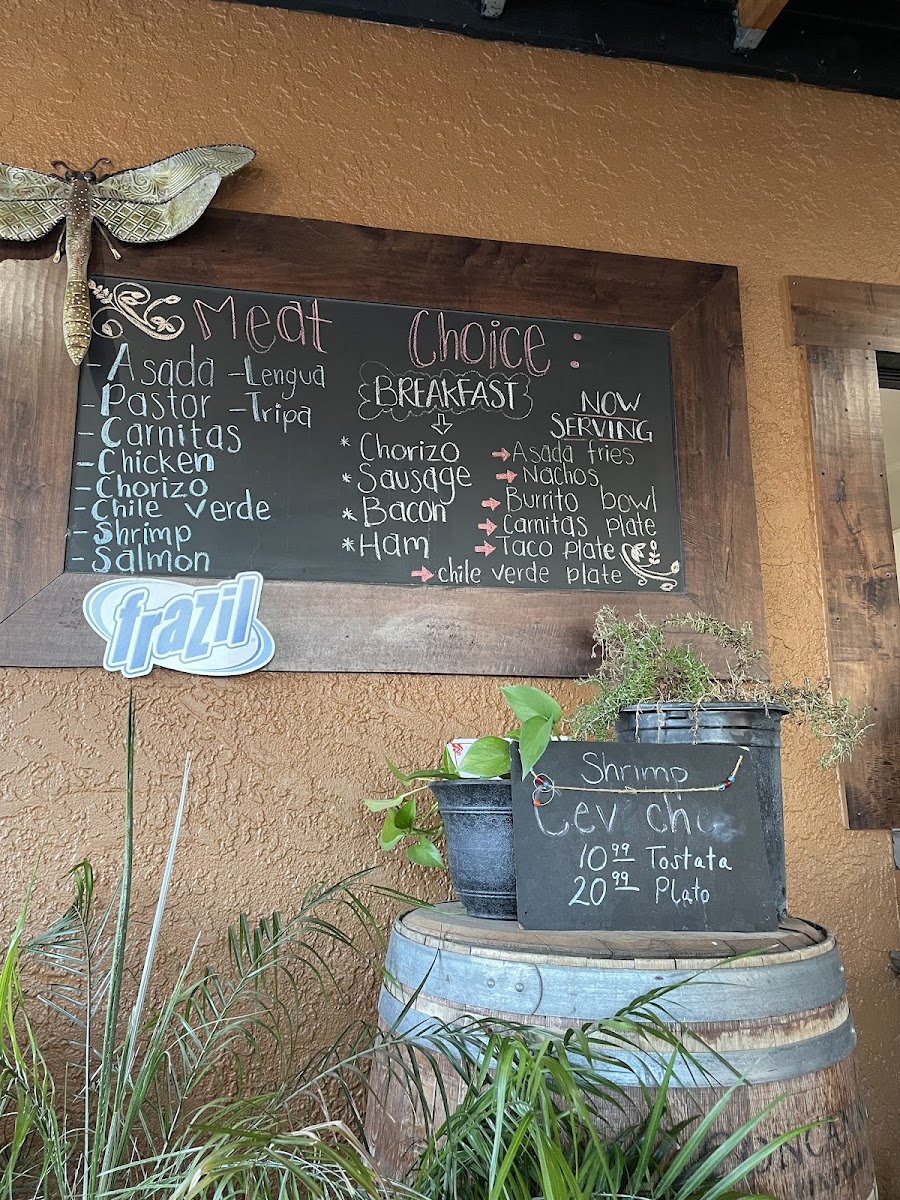 Meat Choice :
- Asada
- Pastor
- Carnitas
- Chicken
- Chorizo
- Chile verde
- Shrimp
- Salmon
- Lengua
- Tripa
BREAKFAST
* Chorizo
* Sausage
* Bacon
* Ham
NOW
SERVING
→ Asada fries
→ Nachos
→ Burrito bowl
→ Carnitas plate
→ Taco plate
→ chile verde plate
frazil
Shrimp
10.99 Tostata
20.99 Plato